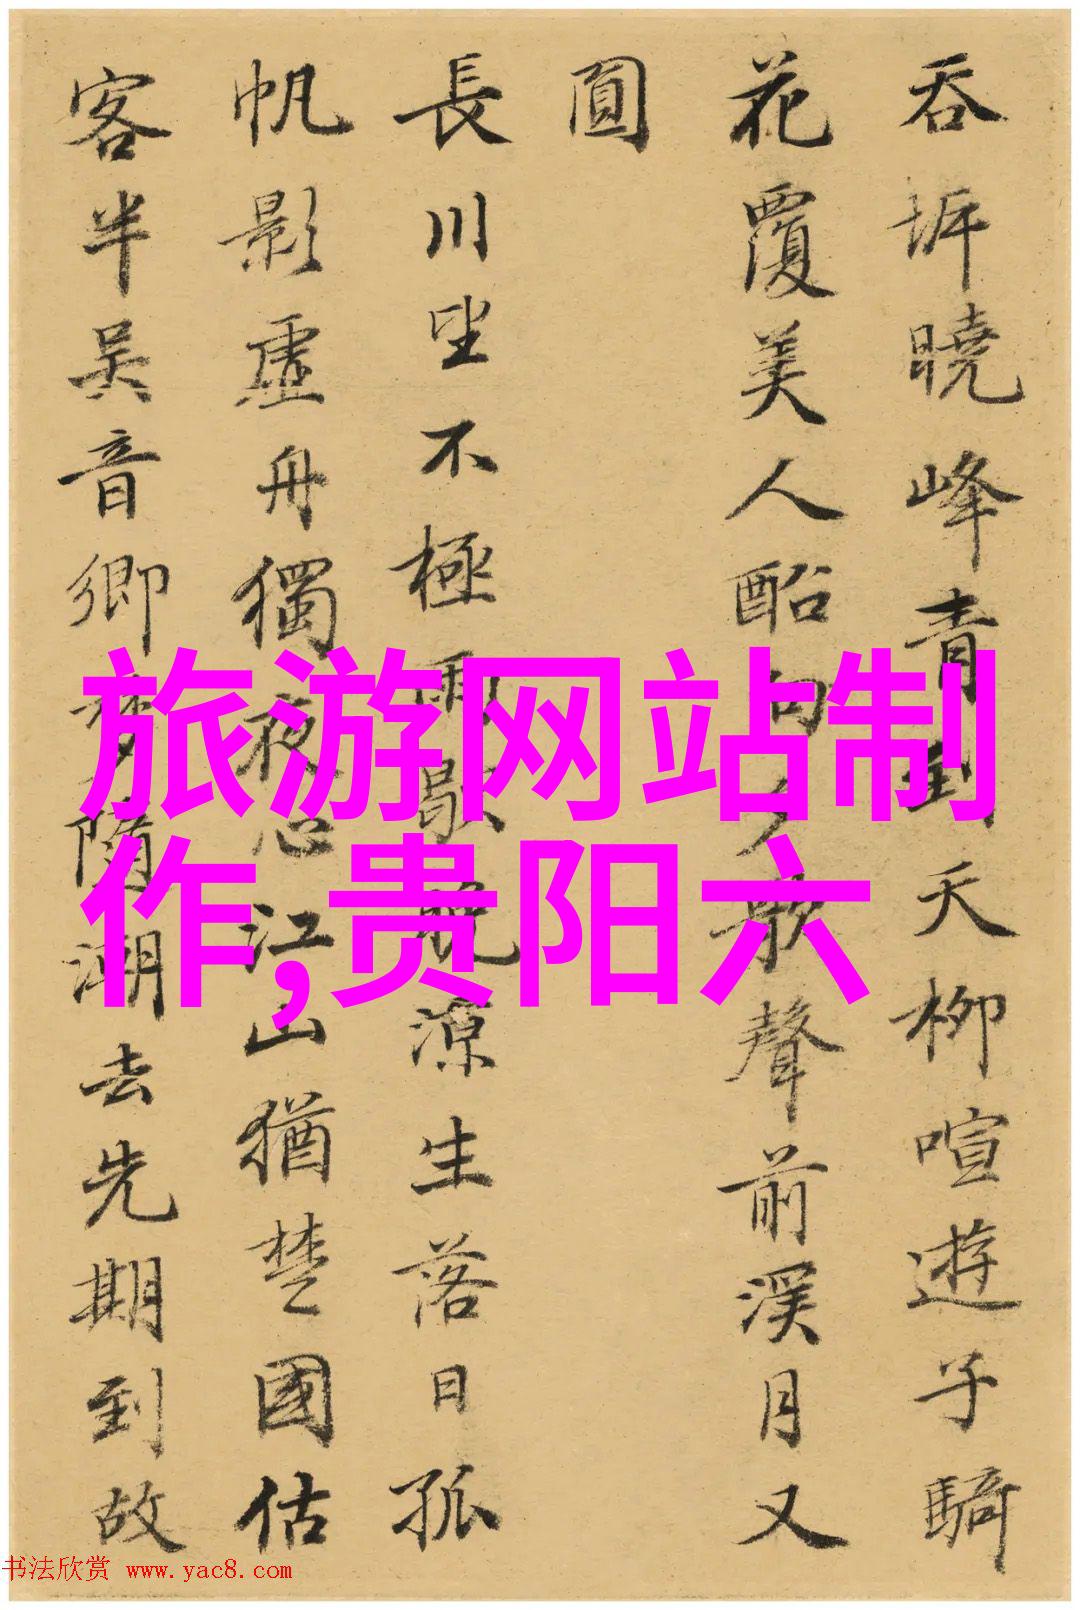 吞坼曉峰青到天柳喧遊子騎
花覆美人船向夕歌聲前溪月又
圓
長川望不極雨歇晚涼生落日孤
帆影虛舟獨夜心江山猶楚國估
客半吳音鄉夢隨潮去先期到故
旅游网站制
作,贵阳六
书法欣赏 www.yac8.com